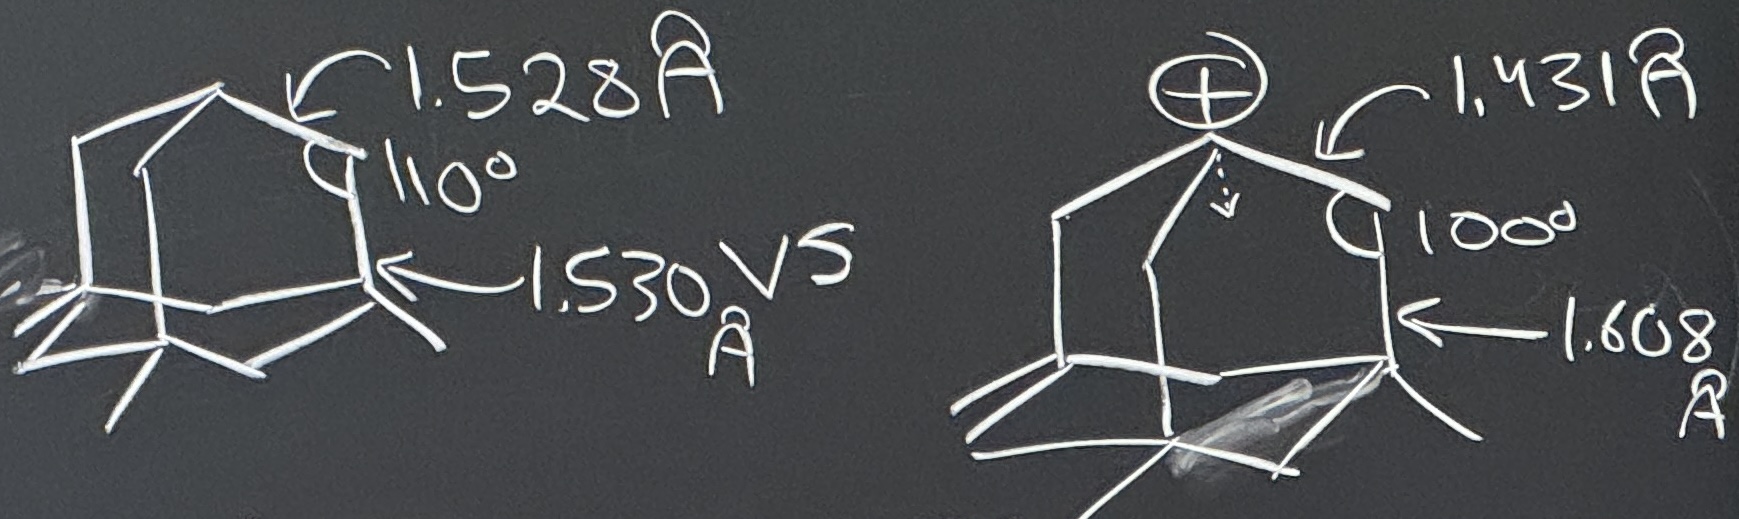 1.528Å
110°
1.530 VS
Å
⊕
1.431Å
100°
1.608
Å